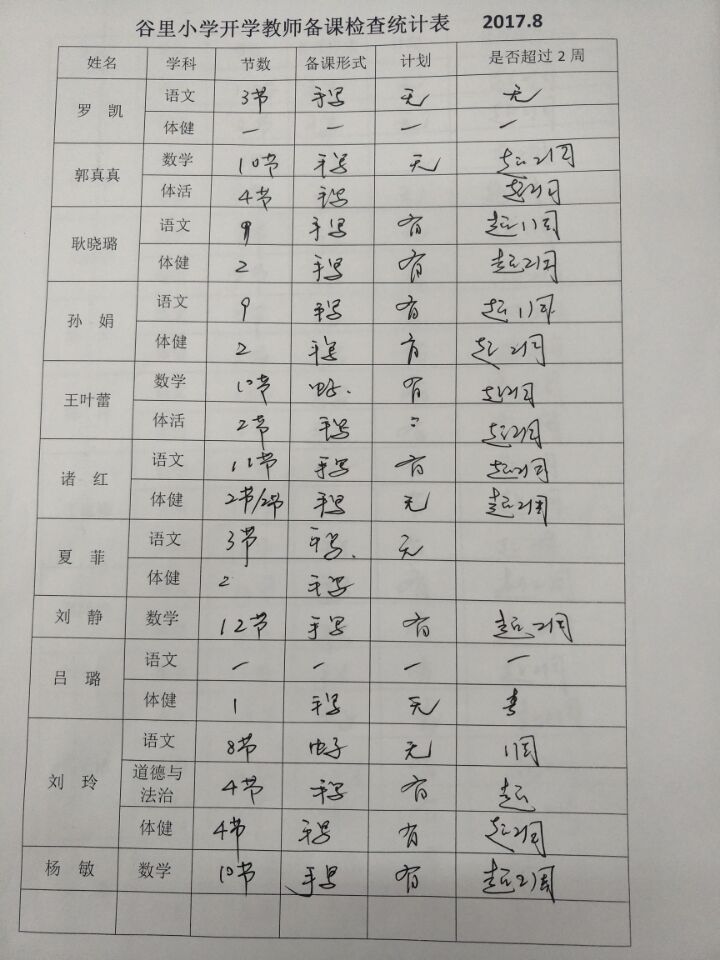 谷里小学开学教师备课检查统计表 2017.8
姓名 学科 节数 备课形式 计划 是否超过2周
罗凯 语文 3节 手写 无 无
体健 — — — —
郭真真 数学 10节 手写 无 超2周
体活 4节 手写 超2周
耿晓璐 语文 9 手写 有 超1周
体健 2 手写 有 超2周
孙娟 语文 9 手写 有 超1周
体健 2 手写 有 超2周
王叶蕾 数学 10节 电子. 有 超2周
体活 2节 手写 超2周
诸红 语文 12节 手写 有 超2周
体健 2节/2节 手写 无 超2周
夏菲 语文 3节 手写. 无
体健 2 手写
刘静 数学 12节 手写 有 超2周
吕璐 语文 — — — —
体健 1 手写 无
刘玲 语文 8节 电子 无 1周
道德与
法治 4节 手写 有 超
体健 4节 手写 有 超2周
杨敏 数学 10节 手写 有 超2周